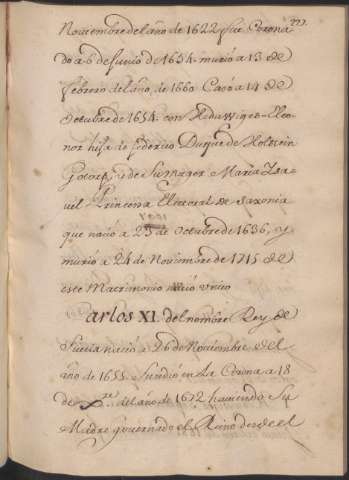 223.
Noviembre del año de 1622 fue Corona
do a 6 de Junio de 1654. murió a 13 de
febrero del año, de 1660. Casó a 14 de
Octubre de 1654. con Heduwiges-Eleo-
nor hija de federico Duque de Holstein
Gotorp, y de su muger Maria Ysa-
vel Princesa Electoral de Saxonia
que nació a 23 de Octubre de 1636, y
murio a 24 de Noviembre de 1715 de
este Matrimonio nació vnico
Carlos XI. del nombre Rey de
Suecia nació a 26 de Noviembre del
año de 1655. Sucedió en La Corona a 18
de del año de 1672 haviendo Su
Madre governado el Reino desde el